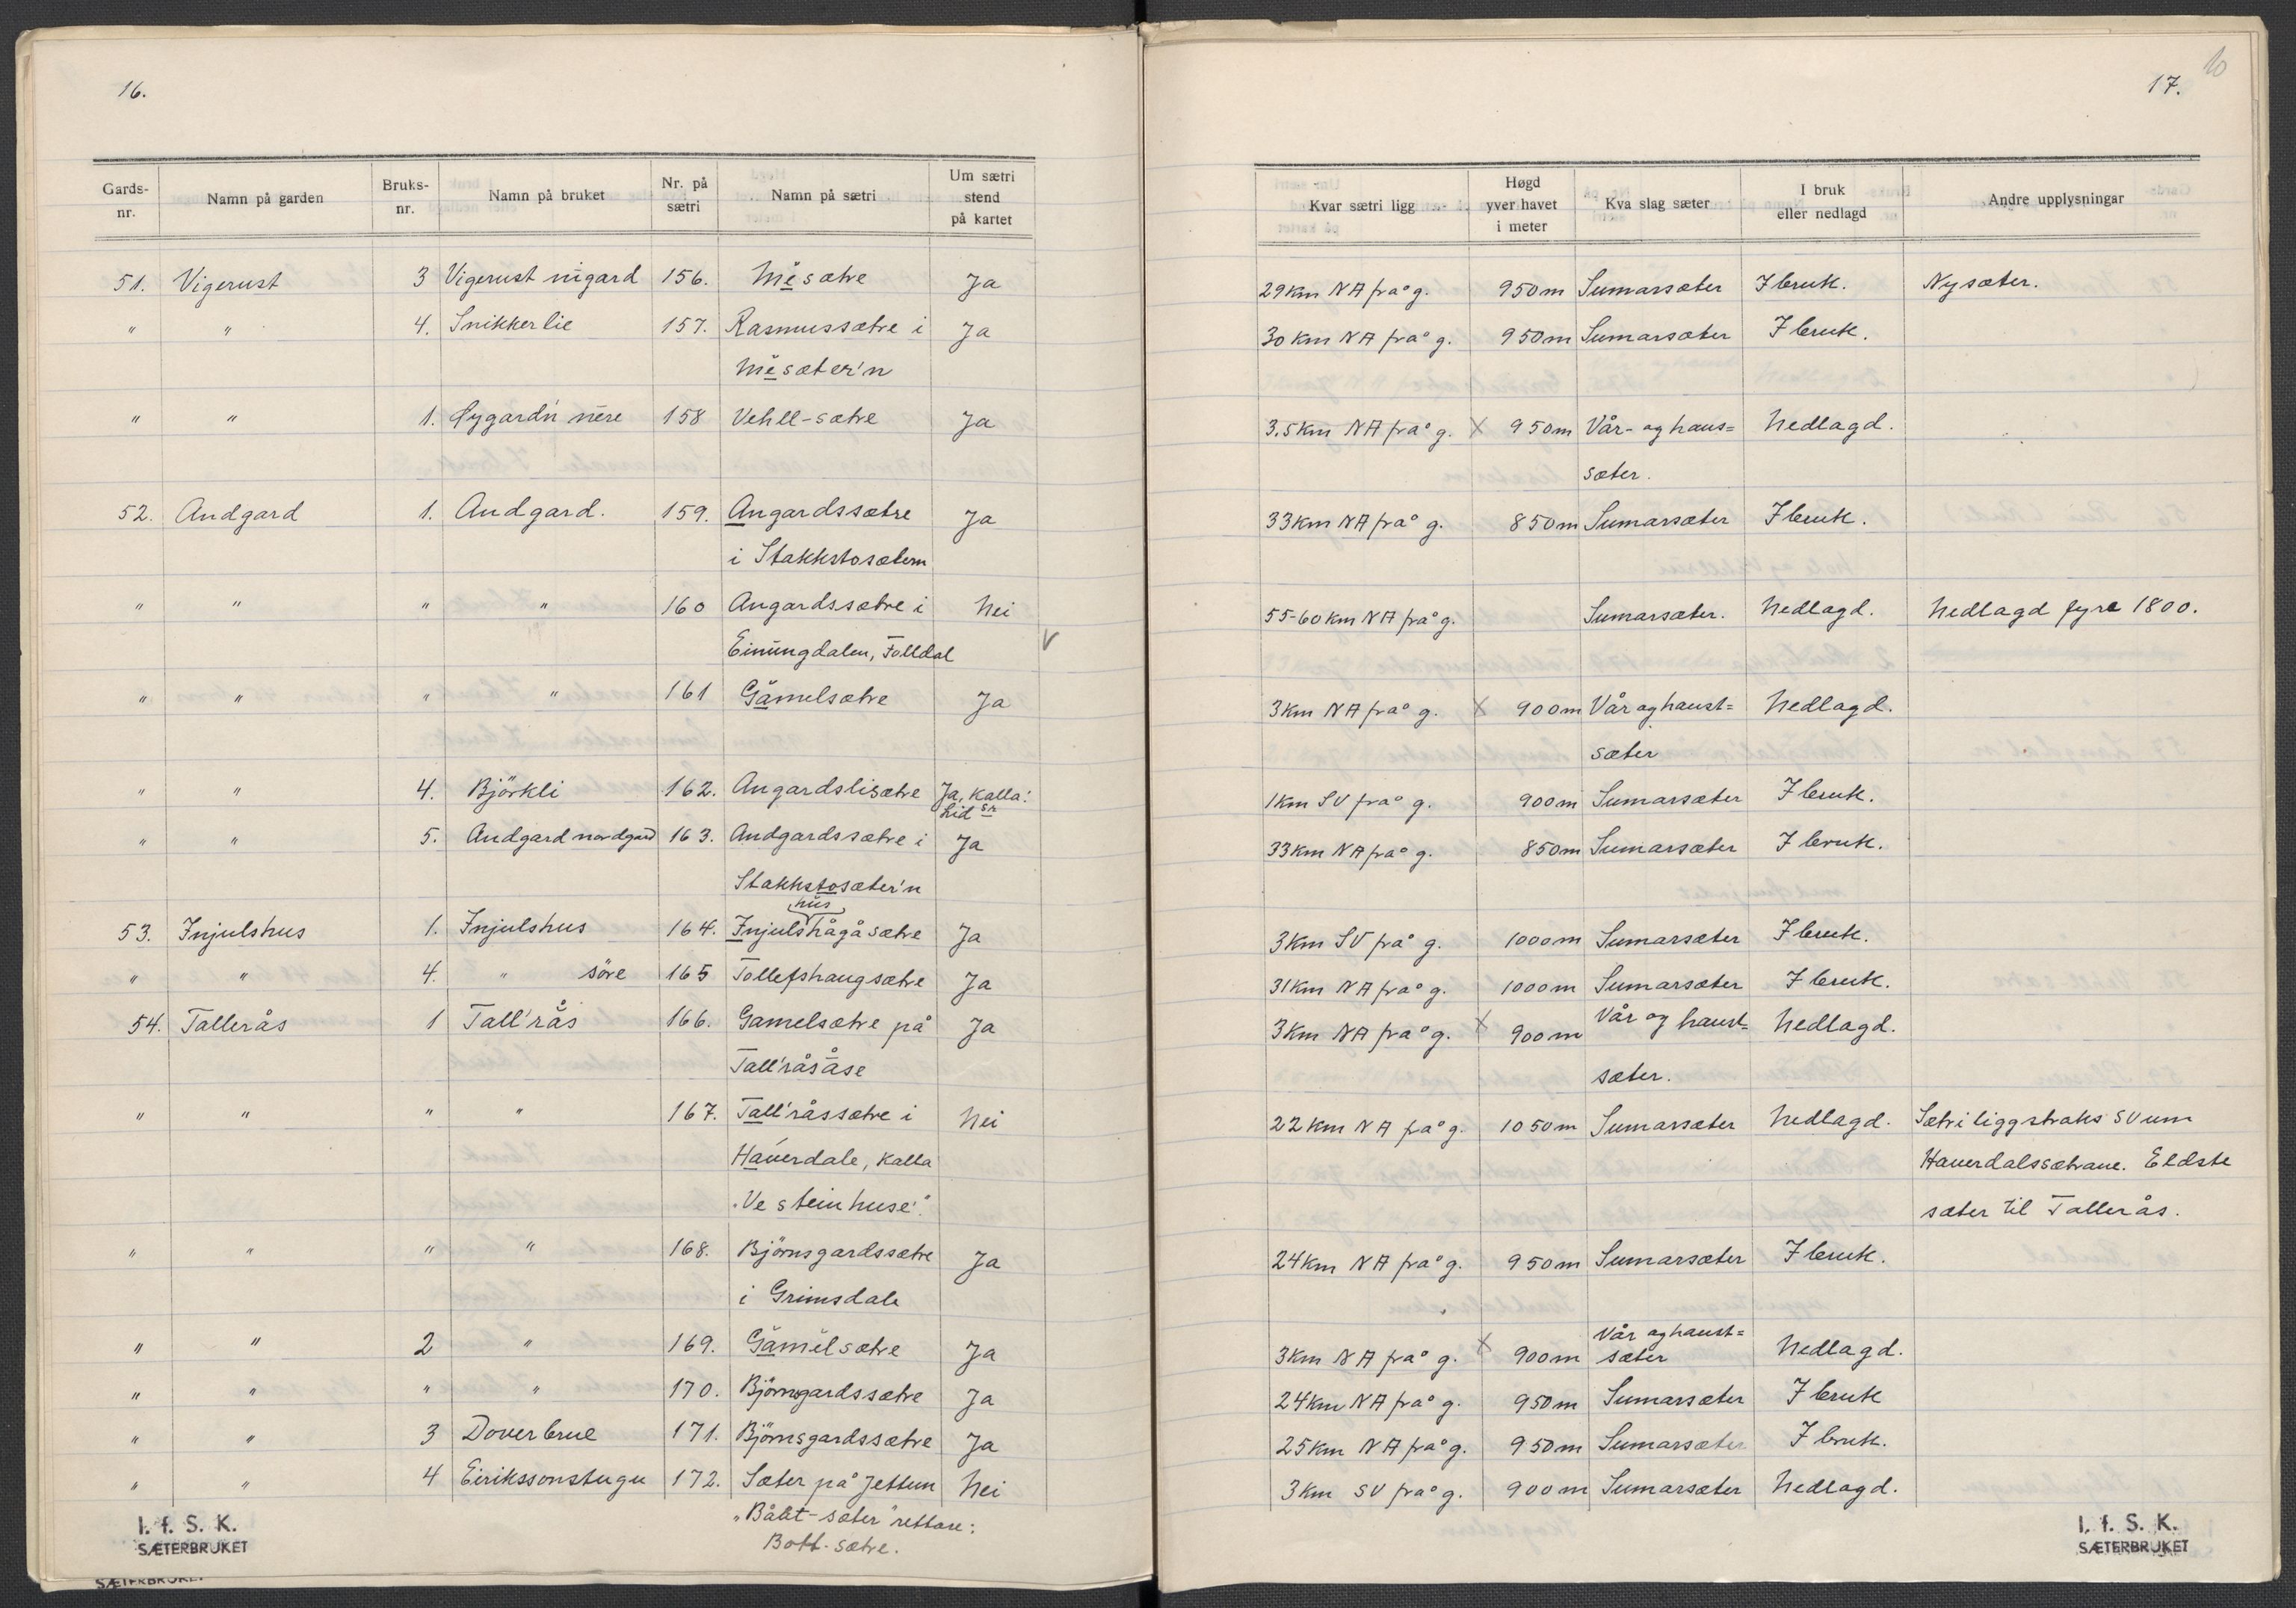 16.
Gards-nr. Namn på garden Bruks-nr. Namn på bruket Nr. på sætri Namn på sætri Um sætri stend på kartet
51. Vigerust 3 Vigerust nigard 156. Mesætre Ja
" " 4. Snikkerlie 157. Rasmussætre i Ja
Mesæter'n
" " 1. Øygard'n nere 158 Vehll-sætre Ja
52. Andgard 1. Andgard. 159. Angardssætre Ja
i Stakkstosætern
" " " " 160 Angardssætre i Nei
Einungdalen, Folldal V
" " " " 161 Gamelsætre Ja
" " 4. Björkli 162. Angardslisætre Ja, Kalla:
Lid sr
" " 5. Andgard nordgard 163. Andgardssætre i Ja
Stakkstosæter'n
hus
53. Injulshus 1. Injulshus 164. Injulshågåsætre Ja
" " 4. " söre 165 Tollefshaugsætre Ja
54. Tallerås 1 Tall'rås 166. Gamelsætre på Ja
Tall'råsåse
" " " " 167. Tall'råssætre i Nei
Haverdale, Kalla
"Ve steinhuse".
" " " " 168. Björnsgardssætre Ja
i Grimsdale
" " 2 " 169. Gamelsætre Ja
" " " " 170. Björnsgardssætre Ja
" " 3 Doverbrue 171. Björnsgardssætre Ja
" " 4 Eirikssonstugu 172. Sæter på Jettun Nei
"Bått-sæter" rettare:
Bott-sætre.
I. f. S. K.
SÆTERBRUKET
SÆTERBRUKET
10
17.
Kvar sætri ligg Høgd yver havet i meter Kva slag sæter I bruk eller nedlagd Andre upplysningar
29 km NA frå g. 950 m Sumarsæter I bruk. Nysæter.
30 km NA frå g. 950 m Sumarsæter I bruk.
3,5 km NA frå g. X 950 m Vår- og haus= Nedlagd.
sæter.
33 km NA frå g. 850 m Sumarsæter I bruk.
55-60 km NA frå g. Sumarsæter. Nedlagd. Nedlagd fyre 1800.
3 km NA frå g. X 900 m Vår og haust= Nedlagd.
sæter
1 km SV frå g. 900 m Sumarsæter I bruk.
33 km NA frå g. 850 m Sumarsæter I bruk.
3 km SV frå g. 1000 m Sumarsæter I bruk.
31 km NA frå g. 1000 m Sumarsæter I bruk.
3 km NA frå g. X 900 m Vår og haust= Nedlagd.
sæter.
22 km NA frå g. 1050 m Sumarsæter Nedlagd. Sætri ligg straks SV um
Haverdalssætrane. Eldste
sæter til Tallerås.
24 km NA frå g. 950 m Sumarsæter I bruk.
Vår og haust=
3 km NA frå g. X 900 m sæter Nedlagd.
24 km NA frå g. 950 m Sumarsæter I bruk
25 km NA frå g. 950 m Sumarsæter I bruk.
3 km SV frå g. 900 m Sumarsæter Nedlagd.
I. f. S. K.
SÆTERBRUKET